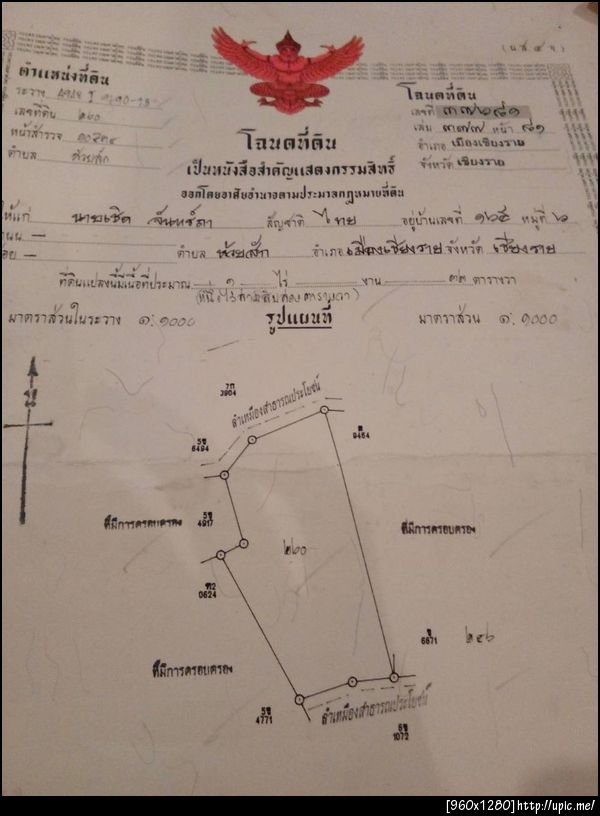 (น.ส. ๔ จ)
ตำแหน่งที่ดิน
ระวาง
เลขที่ดิน ๒๖๐
หน้าสำรวจ
ตำบล ห้วยสัก
โฉนดที่ดิน
เลขที่ ๓๗๒๘๑
เล่ม ๓๗๗ หน้า ๘๑
อำเภอ เมืองเชียงราย
จังหวัด เชียงราย
โฉนดที่ดิน
เป็นหนังสือสำคัญแสดงกรรมสิทธิ์
ออกโดยอาศัยอำนาจตามประมวลกฎหมายที่ดิน
ให้แก่ นายเชิด จันทร์ภา สัญชาติ ไทย อยู่บ้านเลขที่ ๑๖๕ หมู่ที่ ๖
ถนน — ตำบล ห้วยสัก อำเภอ เมืองเชียงราย จังหวัด เชียงราย
ที่ดินแปลงนี้มีเนื้อที่ประมาณ ๑ ไร่ — งาน ๓๒ ตารางวา
(หนึ่งไร่สามสิบสองตารางวา)
มาตราส่วนในระวาง ๑:๑๐๐๐ รูปแผนที่ มาตราส่วน ๑:๑๐๐๐
3904
ลำเหมืองสาธารณประโยชน์
6494
9464
4917
ที่มีการครอบครอง
ที่มีการครอบครอง
๒๖๐
0624
6671
๒๕๖
ที่มีการครอบครอง
4771
ลำเหมืองสาธารณประโยชน์
1072
[960x1280]http://upic.me/